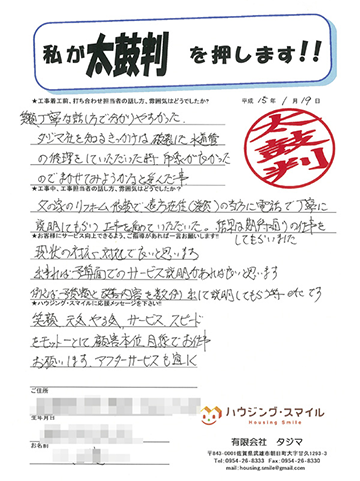 私が太鼓判を押します!!
★工事着工前、打ち合わせ担当者の話し方、雰囲気はどうでしたか?
平成 15年 1月 19日
太鼓判
笑顔 丁寧な話し方で分かりやすかった。
タジマ社を知るきっかけは 破裂した 水道管
の修理をしていただいた時 印象が良かった
のでまかせてみようかなと思った事
★工事中、工事担当者の話し方、雰囲気はどうでしたか?
父の家のリフォーム依頼で 遠方在住 の当方に電話で丁寧に
説明してもらい 工事を進めていただいた。結果は期待通りの仕事を
してもらいました
★お客様にサービス向上できるよう、ご指導があれば一言お願いします!!
現状の対応で良いと思います
出来れば予算面でのサービス説明があれば良いと思います
例えば 予算と改善内容を数分 出して説明してもらう etc です
★ハウジング・スマイルに応援メッセージを下さい!!
笑顔 元気 やる気、サービス スピード
をモットーとして 顧客本位 目線でお仕事
お願いします。アフターサービスも宜しく
ご住所
生年月日
お名前
ハウジング・スマイル
Housing Smile
有限会社 タジマ
〒843-0001佐賀県武雄市朝日町大字甘久1293-3
Tel : 0954-26-8333 Fax : 0954-26-8330
mail : housing.smile@gmail.com